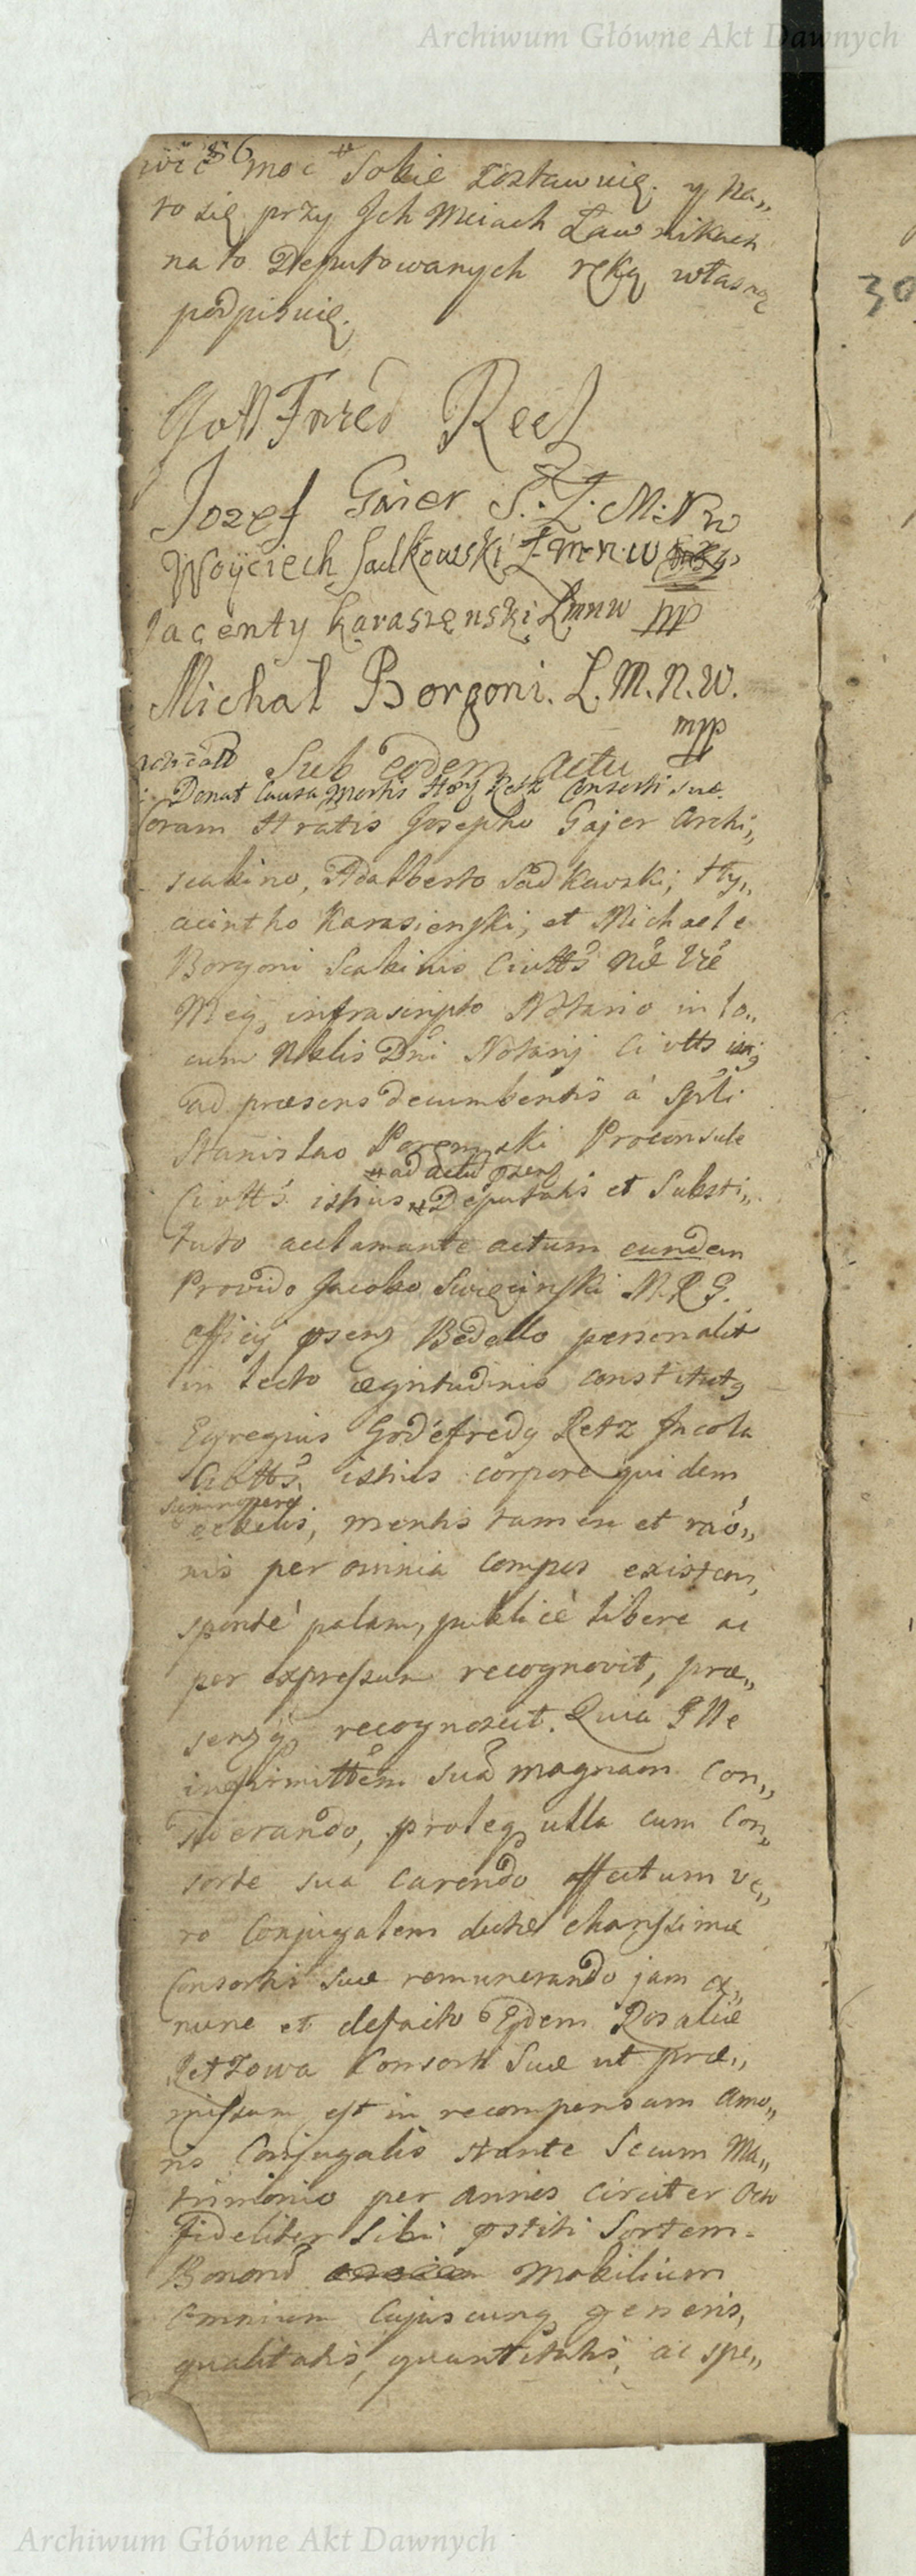 Archiwum Główne Akt Dawnych
wić moc Sobie zostawuię. y na„
to się przy Ich Mciach Ławnikach
na to Deputowanych ręką własną
podpisuię.
30
GottFried Reetz
Jozef Gaier S. Ł. M: N W
Woyciech Sadkowski Ł m n w
Jacenty Karasięnski Ł m n w mp
Michał Borgoni. Ł. M. N. W.
mpp
Sub eodem actu
Donat Causa Mortis Retz Consorti suæ
Coram Hratis Josepho Gajer Archi„
scabino, Adalberto Sadkowski, Hy„
acintho Karasienski, et Michaele
Borgoni Scabinis Civtts Næ Væ
Meq infrascripto Notario in lo„
cum Nblis Dni Notarij Civtts
ad præsens decumbentis à Spbli
Stanislao Poremski Proconsule
ad actu psens
Civtts istius Deputatis et Substi„
tuto acclamante actum eundem
Provido Jacobo Swięcinski M. R. G.
officij psens Bedello personalit
in lecto ægritudinis constitutus
Egregius Godefredus Retz Incola
Civtts istius corpore quidem
mentis tamen et rao„
nis per omnia compos existens,
sponte palam, publicè libere ac
per expressum recognovit, præ„
sensq recognoscit. Quia Ille
infirmittem suam magnam con„
siderando, proleq ulla cum Con„
sorte sua carendo affectum ve„
ro Conjugalem dictæ charissimæ
Consortis suæ remunerando jam ex
nunc et defacto Eidem Rosaliæ
Retzowa Consorti Suæ ut præ„
missum est in recompensam amo„
ris Conjugalis stante Secum Ma„
trimonio per annos circiter octo
fideliter Sibi pstiti Sortem
Bonorum Mobilium
omnium Cujuscunq generis,
qualitatis, quantitatis, ac spe„
Archiwum Główne Akt Dawnych